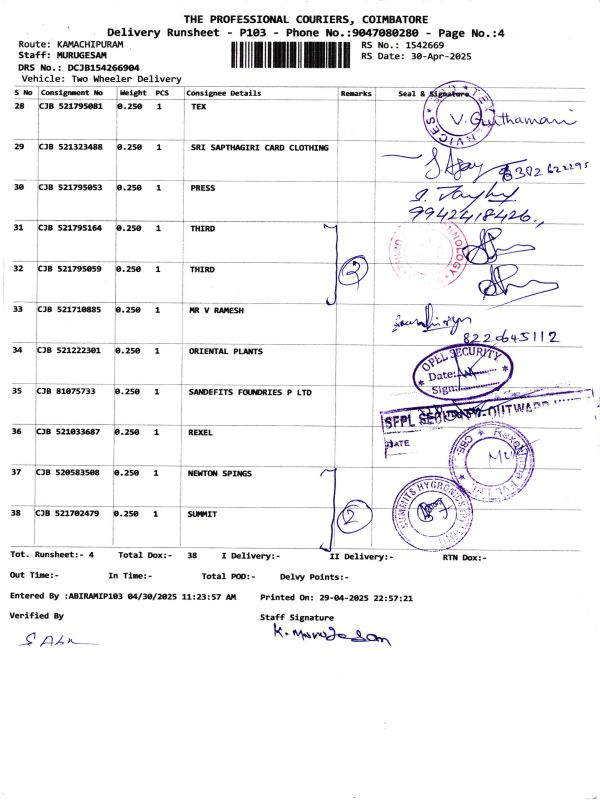 THE PROFESSIONAL COURIERS, COIMBATORE
Delivery Runsheet - P103 - Phone No.:9047080280 - Page No.:4
Route: KAMACHIPURAM RS No.: 1542669
Staff: MURUGESAM RS Date: 30-Apr-2025
DRS No.: DCJB154266904
Vehicle: Two Wheeler Delivery
S No Consignment No Weight PCS Consignee Details Remarks Seal & Signature
28 CJB 521795081 0.250 1 TEX V. Geethamani
29 CJB 521323488 0.250 1 SRI SAPTHAGIRI CARD CLOTHING
30 CJB 521795053 0.250 1 PRESS
9942418426.,
31 CJB 521795164 0.250 1 THIRD
2
32 CJB 521795059 0.250 1 THIRD
33 CJB 521710885 0.250 1 MR V RAMESH
8220645112
34 CJB 521222301 0.250 1 ORIENTAL PLANTS
OPEL SECURITY
Date:
Sign:
35 CJB 81075733 0.250 1 SANDEFITS FOUNDRIES P LTD
SFPL SECURITY-OUTWARD
DATE
36 CJB 521033687 0.250 1 REXEL
37 CJB 520583508 0.250 1 NEWTON SPINGS
2
38 CJB 521702479 0.250 1 SUMMIT
Tot. Runsheet:- 4 Total Dox:- 38 I Delivery:- II Delivery:- RTN Dox:-
Out Time:- In Time:- Total POD:- Delvy Points:-
Entered By :ABIRAMIP103 04/30/2025 11:23:57 AM Printed On: 29-04-2025 22:57:21
Verified By Staff Signature
K. Murugesan